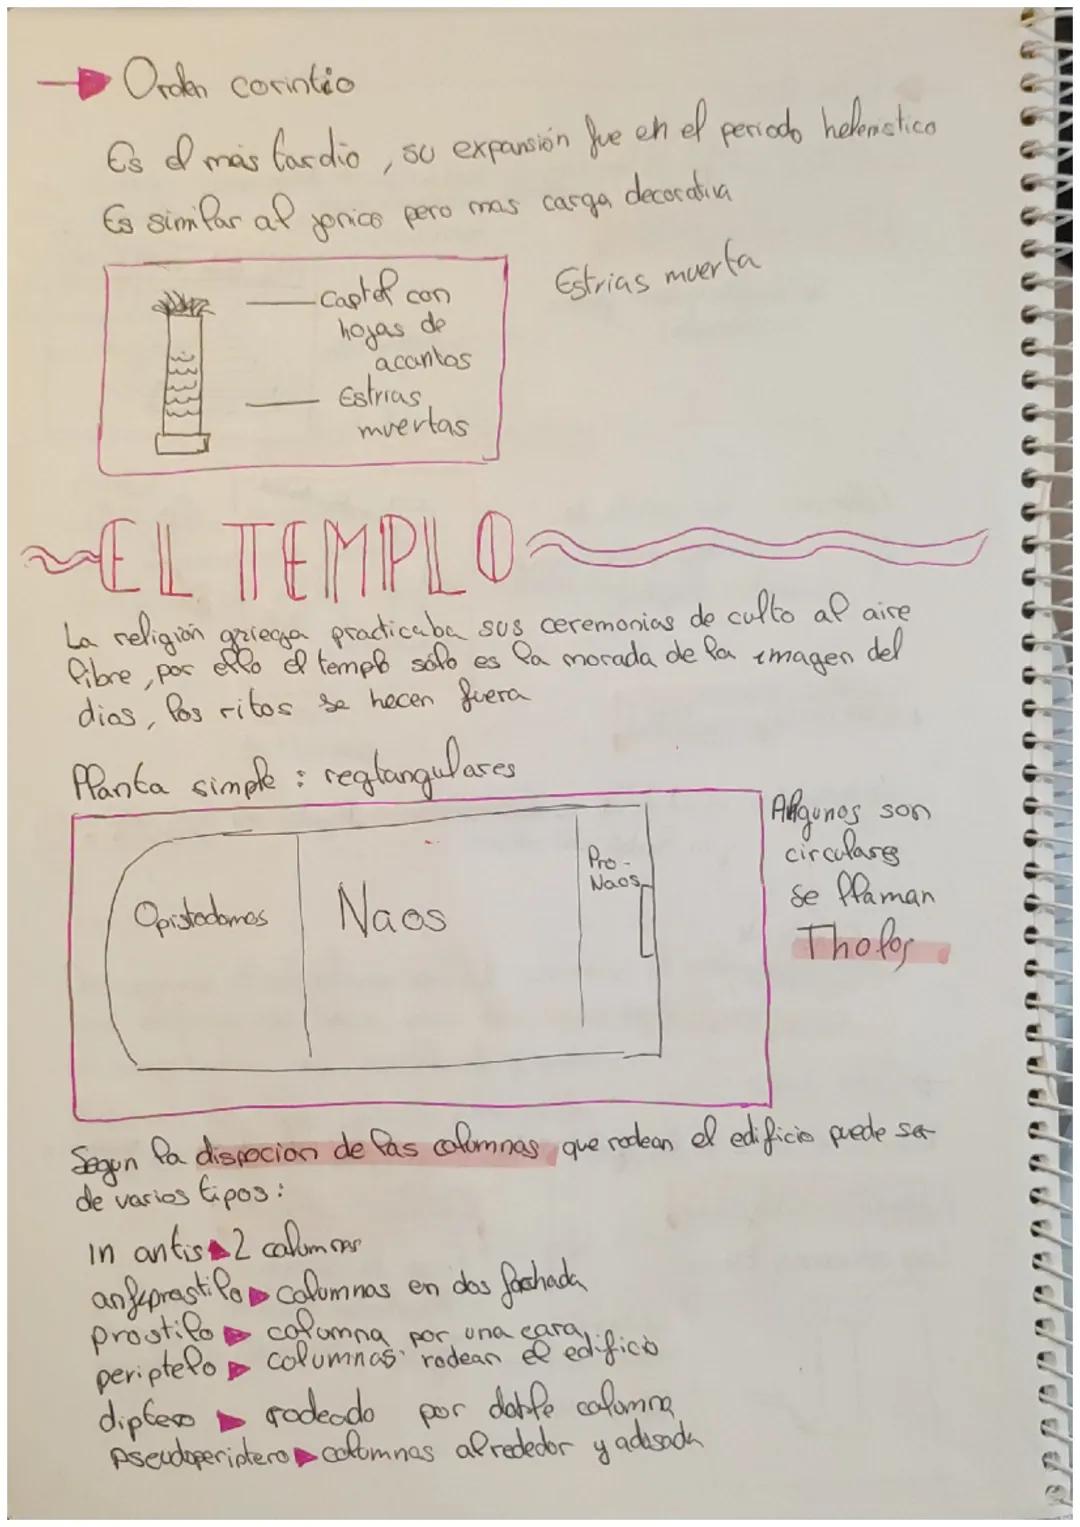 Orden corintio
Es el más tardio, su expansión fue en el periodo helenistico
Es similar al jonico pero mas carga decorativa
Estrias muerta
Captel con
hojas de
acantos
Estrias
muertas
EL TEMPLO
La religión griega practicaba sus ceremonias de culto al aire
libre, por ello el templo sólo es la morada de la imagen del
dios, los ritos se hecen fuera
Planta simple : regtangulares
Opistodomos
Naos
Pro-
Naos
Algunos son
circulares
Se llaman
Tholos
Segun la dispocion de las columnas que rodean el edificio puede ser
de varios tipos:
in antis 2 columnas
anfiprostilo columnas en dos fachada
prostilo columna por una cara
periptelo columnas rodean el edificio
diptero rodeado por doble columna
Pseudoperiptero columnas alrededor y adosada